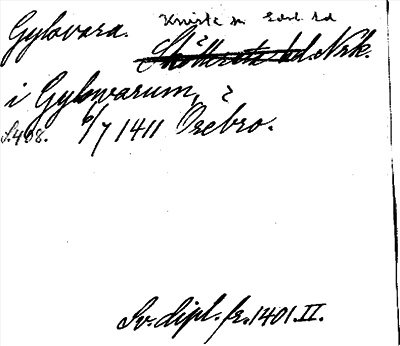 Gylovara. Knista sn Edsb. hd
Skölleresta hd. Nrk.
i Gylowarum,
S.408. 6/7 1411 Örebro.
Sv. dipl. fr. 1401. II.